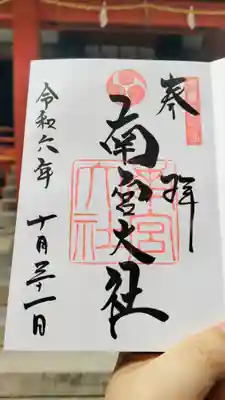 奉拝
南宮大社
令和六年
十月三十一日